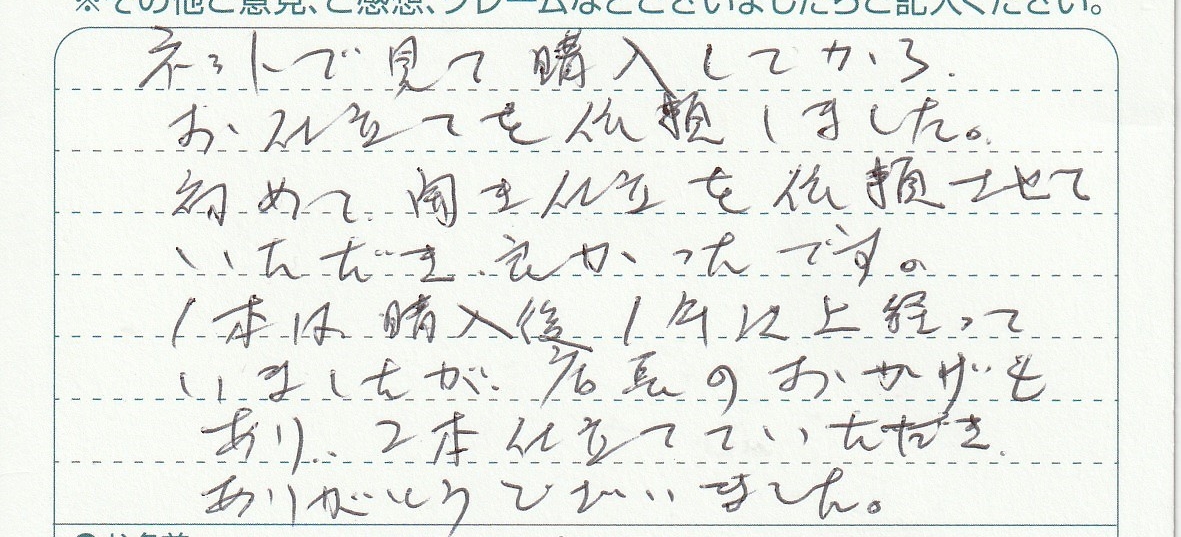 ※その他ご意見、ご感想、クレームなどございましたらご記入ください。
ネットで見て購入してから、
お仕立てを依頼しました。
初めて開き仕立を依頼させて
いただき、良かったです。
1本は購入後1年以上経って
いましたが、店長のおかげも
あり、2本仕立てていただき、
ありがとうございました。